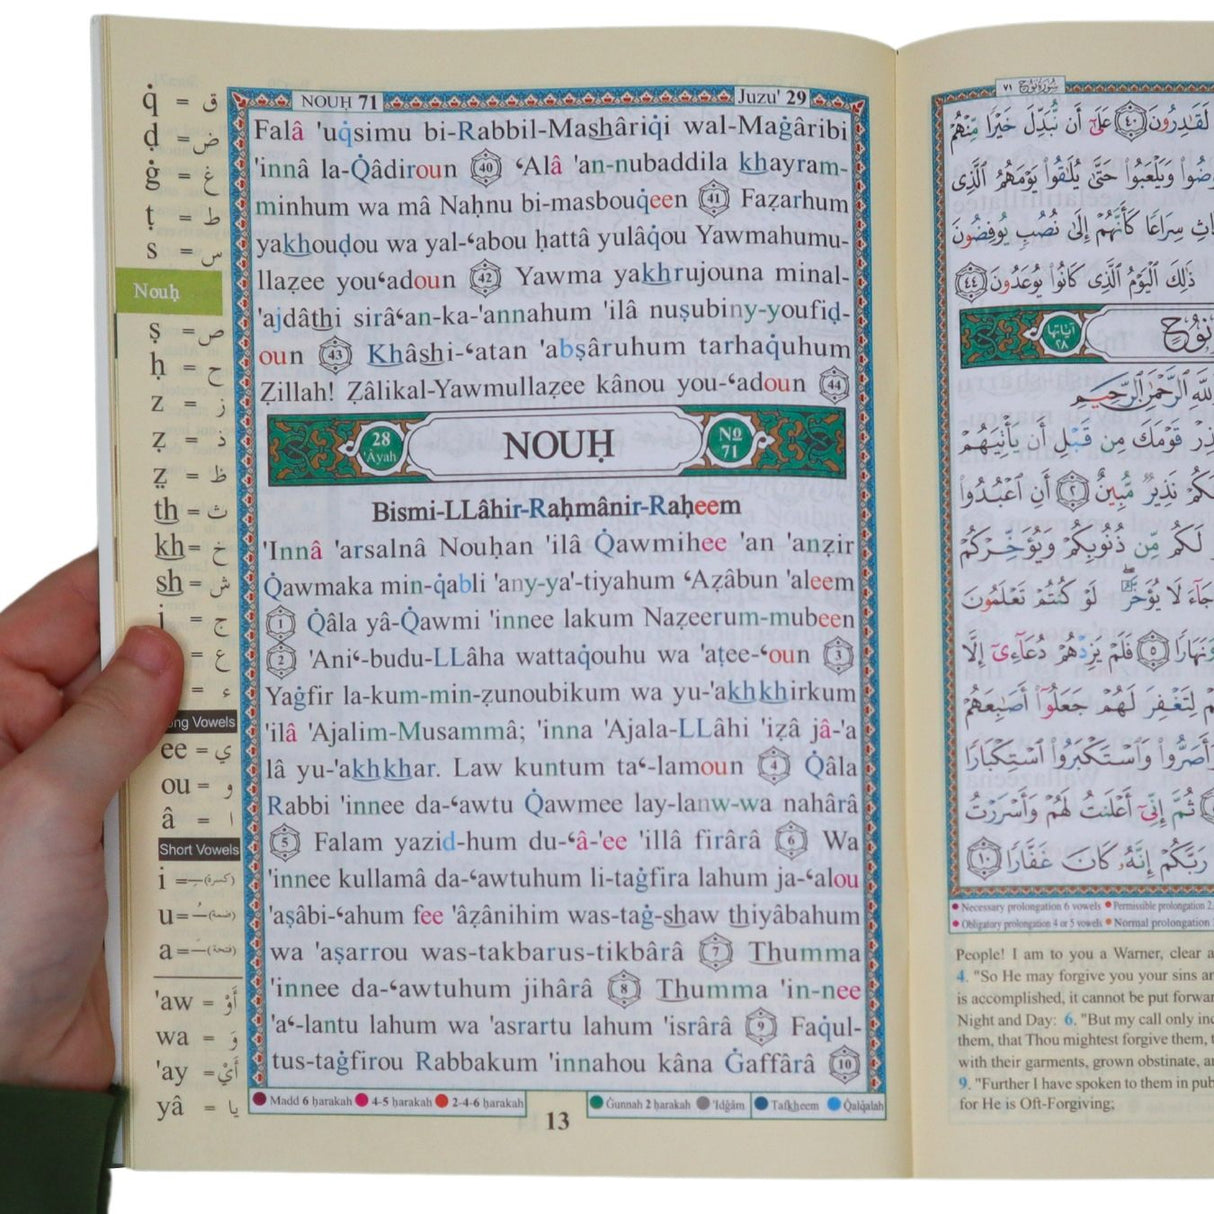 q̇ = ق
ḍ = ض
ġ = غ
ṭ = ط
s = س
Nouḥ
ṣ = ص
ḥ = ح
z = ز
ẓ = ذ
ẓ̤ = ظ
th = ث
kh = خ
sh = ش
j = ج
= ع
= ء
ng Vowels
ee = ي
ou = و
â = ا
Short Vowels
i = (كسرة)
u = (ضمة)
a = (فتحة)
'aw = أَوْ
wa = وَ
'ay = أَيْ
yâ = يا
NOUḤ 71
Juzu' 29
Falâ 'uq̇simu bi-Rabbil-Mashâriq̇i wal-Maġâribi
'innâ la-Q̇âdiroun 40 ‘Alâ 'an-nubaddila khayram-
minhum wa mâ Naḥnu bi-masbouq̇een 41 Faẓarhum
yakhouḍou wa yal-‘abou ḥattâ yulâq̇ou Yawmahumu-
llaẓee you‘adoun 42 Yawma yakhrujouna minal-
'ajdâthi sirâ‘an-ka-'annahum 'ilâ nuṣubiny-youfiḍ-
oun 43 Khâshi-‘atan 'abṣâruhum tarhaq̇uhum
Ẓillah! Ẓâlikal-Yawmullaẓee kânou you-‘adoun 44
28 'Âyah
NOUḤ
No 71
Bismi-LLâhir-Raḥmânir-Raḥeem
'Innâ 'arsalnâ Nouḥan 'ilâ Q̇awmihee 'an 'anẓir
Q̇awmaka min-q̇abli 'any-ya'-tiyahum ‘Aẓâbun 'aleem
1 Q̇âla yâ-Q̇awmi 'innee lakum Naẓeerum-mubeen
2 'Ani‘-budu-LLâha wattaq̇ouhu wa 'aṭee-‘oun 3
Yaġfir la-kum-min-ẓunoubikum wa yu-'akhkhirkum
'ilâ 'Ajalim-Musammâ; 'inna 'Ajala-LLâhi 'iẓâ jâ-'a
lâ yu-'akhkhar. Law kuntum ta‘-lamoun 4 Q̇âla
Rabbi 'innee da-‘awtu Q̇awmee lay-lanw-wa nahârâ
5 Falam yazid-hum du-‘â-'ee 'illâ firârâ 6 Wa
'innee kullamâ da-‘awtuhum li-taġfira lahum ja-‘alou
'aṣâbi-‘ahum fee 'âẓânihim was-taġ-shaw thiyâbahum
wa 'aṣarrou was-takbarus-tikbârâ 7 Thumma
'innee da-‘awtuhum jihârâ 8 Thumma 'in-nee
'a‘-lantu lahum wa 'asrartu lahum 'isrârâ 9 Faq̇ul-
tus-taġfirou Rabbakum 'innahou kâna Ġaffârâ 10
Madd 6 ḥarakah 4-5 ḥarakah 2-4-6 ḥarakah
Ġunnah 2 ḥarakah 'Idġâm Tafkheem Q̇alq̇alah
13
سورة نوح ٧١
لَقَٰدِرُونَ ٤٠ عَلَىٰٓ أَن نُّبَدِّلَ خَيْرًا مِّنْهُمْ
وَيَلْعَبُوا۟ حَتَّىٰ يُلَٰقُوا۟ يَوْمَهُمُ ٱلَّذِى
سِرَاعًا كَأَنَّهُمْ إِلَىٰ نُصُبٍ يُوفِضُونَ
ذَٰلِكَ ٱلْيَوْمُ ٱلَّذِى كَانُوا۟ يُوعَدُونَ ٤٤
آياتها ٢٨
نُوح
ٱلرَّحْمَٰنِ ٱلرَّحِيمِ
قَوْمَكَ مِن قَبْلِ أَن يَأْتِيَهُمْ
نَذِيرٌ مُّبِينٌ ٢ أَنِ ٱعْبُدُوا۟
لَكُم مِّن ذُنُوبِكُمْ وَيُؤَخِّرْكُمْ
جَآءَ لَا يُؤَخَّرُ ۖ لَوْ كُنتُمْ تَعْلَمُونَ
وَنَهَارًا ٥ فَلَمْ يَزِدْهُمْ دُعَآءِىٓ إِلَّا
لِتَغْفِرَ لَهُمْ جَعَلُوٓا۟ أَصَٰبِعَهُمْ
وَأَصَرُّوا۟ وَٱسْتَكْبَرُوا۟ ٱسْتِكْبَارًا
ثُمَّ إِنِّىٓ أَعْلَنتُ لَهُمْ وَأَسْرَرْتُ
رَبَّكُمْ إِنَّهُۥ كَانَ غَفَّارًا ١٠
Necessary prolongation 6 vowels Permissible prolongation 2,
Obligatory prolongation 4 or 5 vowels Normal prolongation
People! I am to you a Warner, clear
4. "So He may forgive you your sins
is accomplished, it cannot be put
Night and Day: 6. "But my call only
them, that Thou mightest forgive them,
with their garments, grown obstinate,
9. "Further I have spoken to them in
for He is Oft-Forgiving;